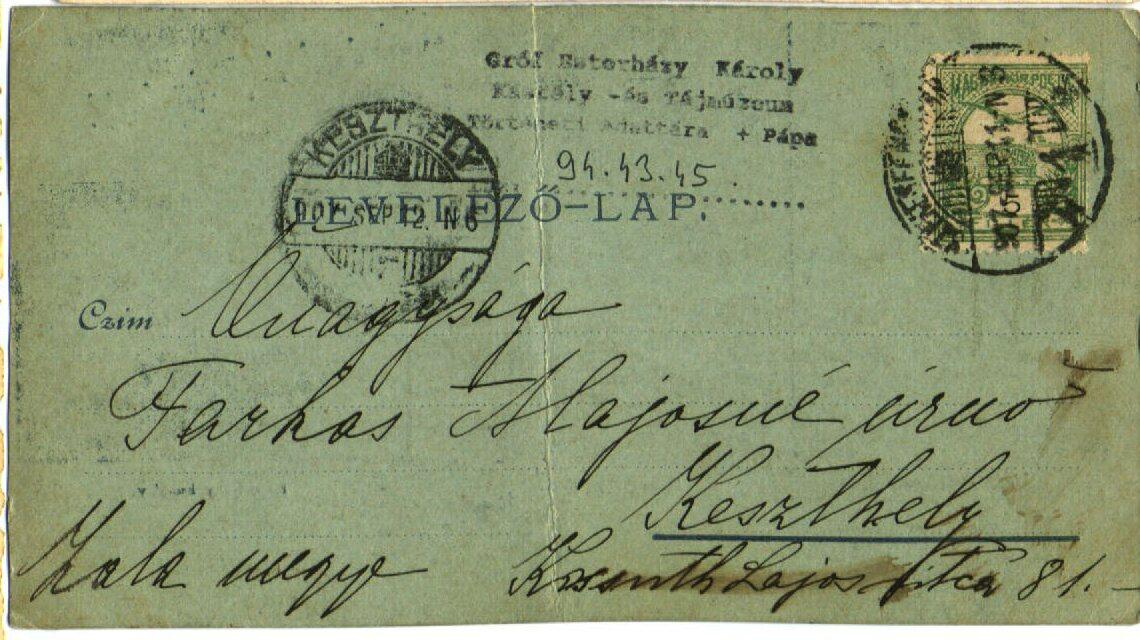 Gróf Esterházy Károly
Kastély -és Tájmúzeum
Történeti Adattára + Pápa
94.43.45.
KESZTHELY
907 SEP 12. N6
LEVELEZŐ-LAP.
MAGYAR KIR. POSTA
Czim
Őnagysága
Farkas Majosné úrnő
Keszthely
Zala megye
Kossuth Lajos utca 81.-